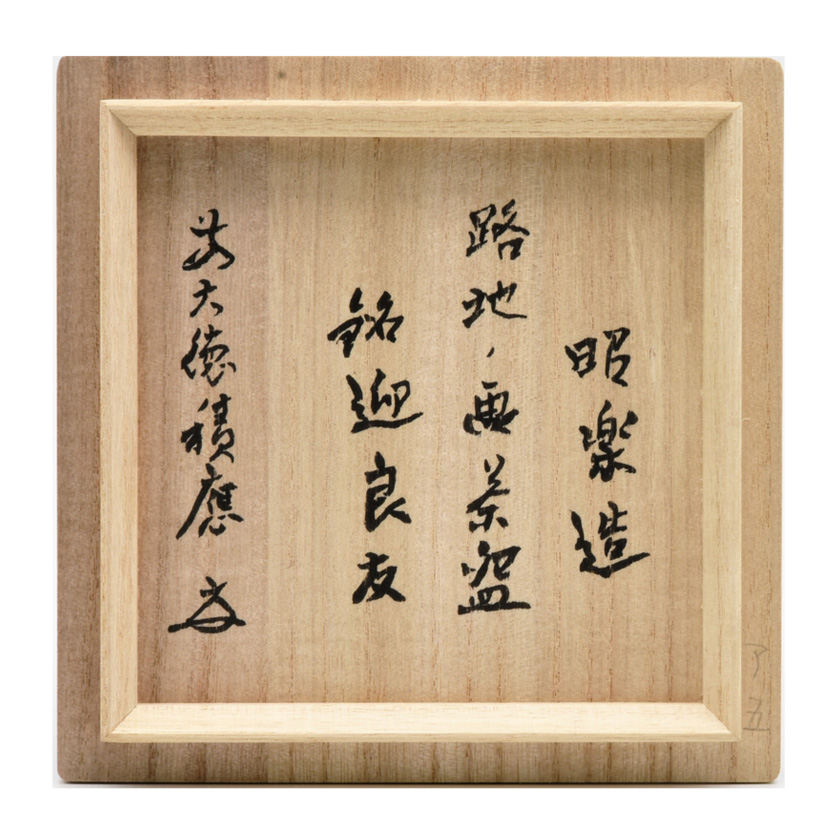 昭楽造
路地ノ画茶盌
銘迎良友
前大徳積應